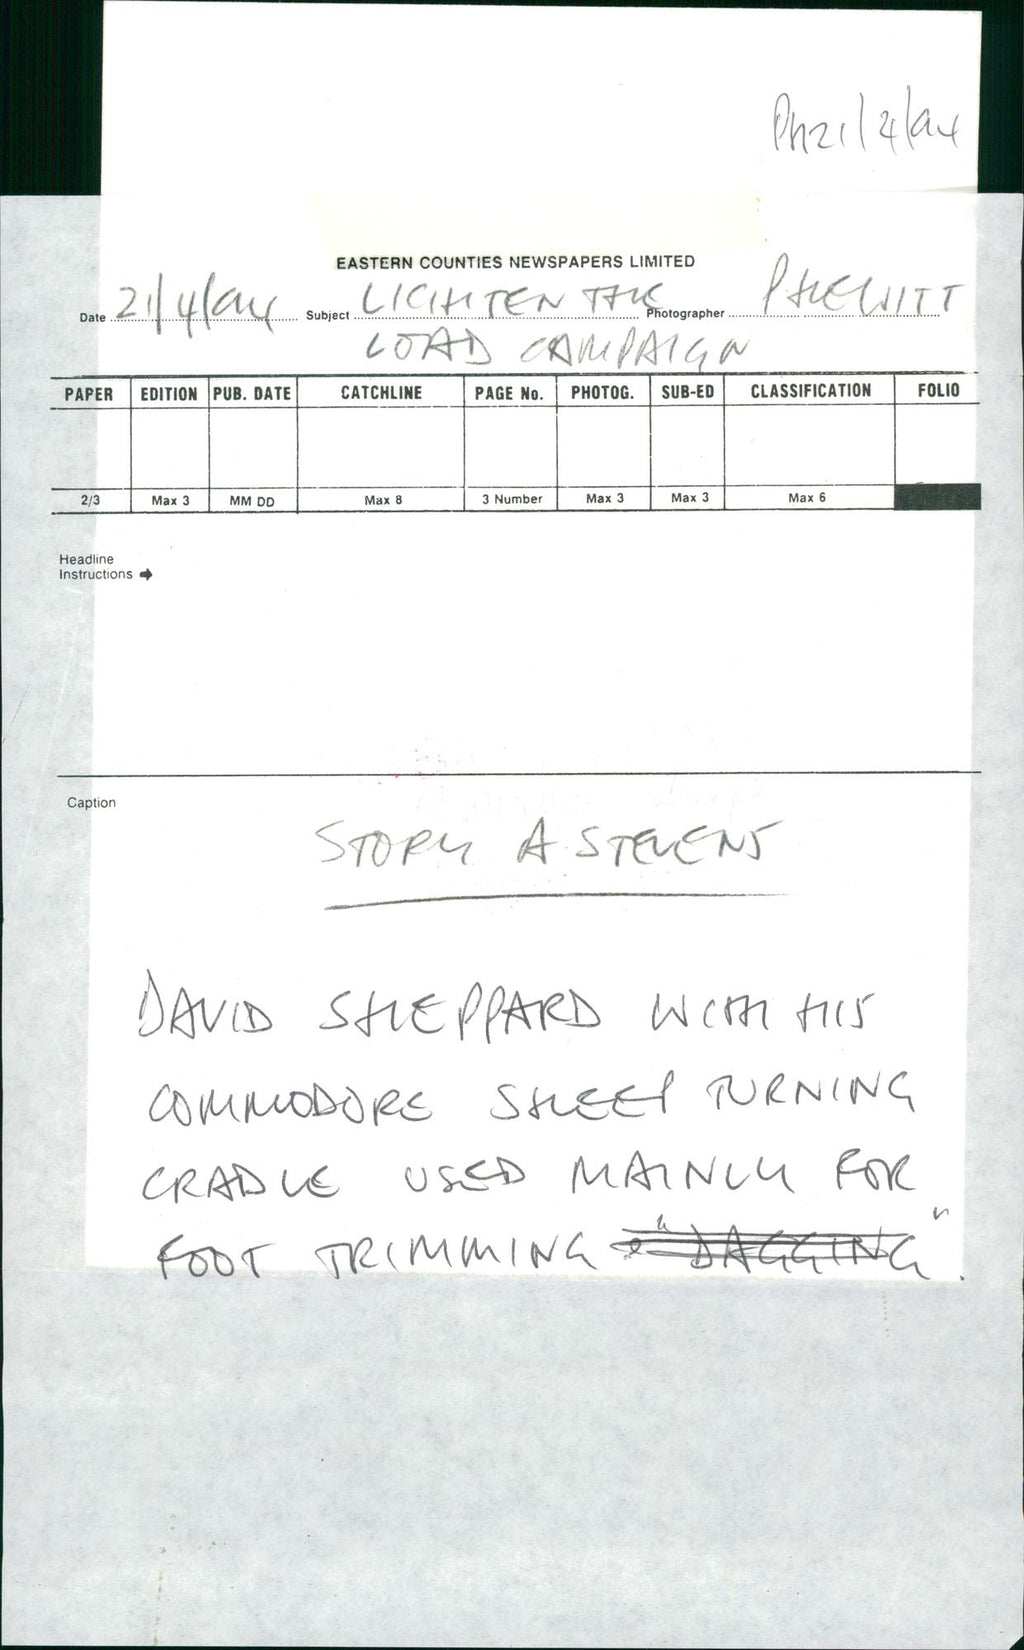 PH21/4/94
EASTERN COUNTIES NEWSPAPERS LIMITED
Date 21/4/94 Subject LIGHTEN THE Photographer P HEWITT
LOAD CAMPAIGN
PAPER EDITION PUB. DATE CATCHLINE PAGE No. PHOTOG. SUB-ED CLASSIFICATION FOLIO
2/3 Max 3 MM DD Max 8 3 Number Max 3 Max 3 Max 6
Headline
Instructions
Caption
STORY A STEVENS
DAVID SHEPPARD WITH HIS
COMMODORE SHEEP TURNING
CRADLE USED MAINLY FOR
FOOT TRIMMING "DAGGING".